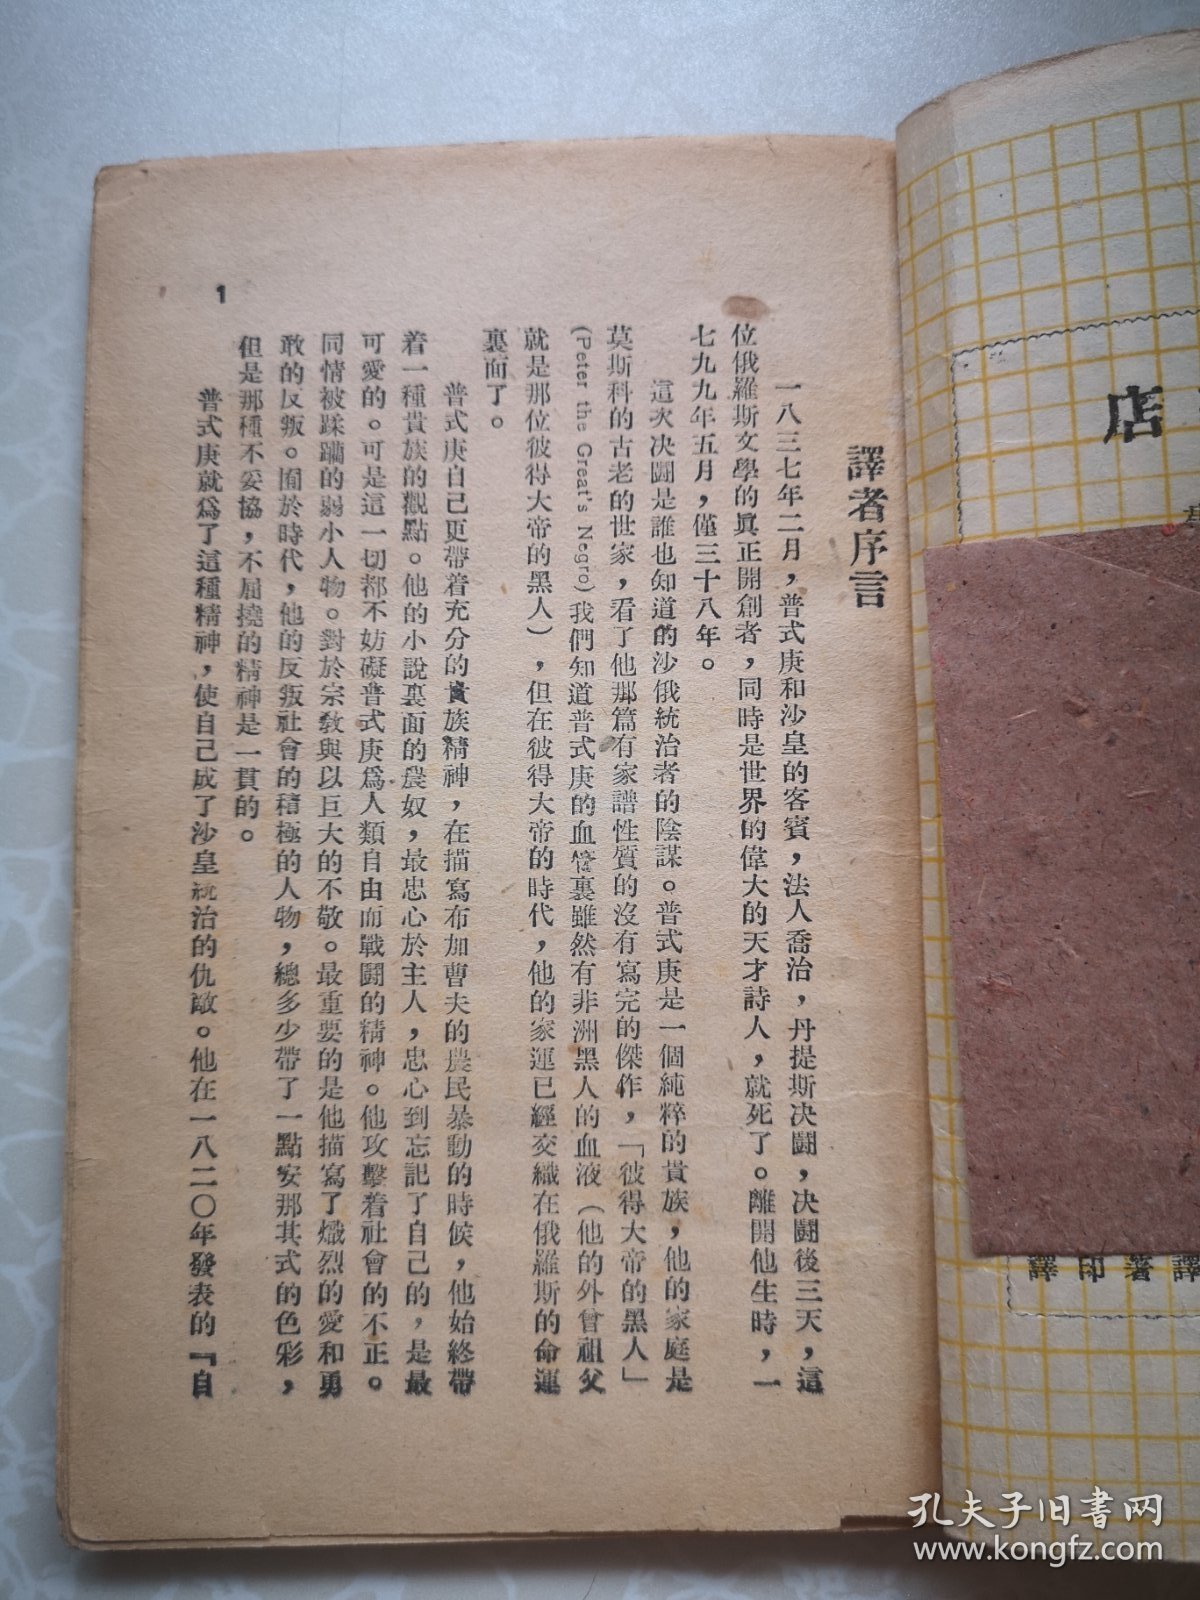 譯者序言
一八三七年二月，普式庚和沙皇的客賓，法人喬治，丹提斯決鬪，決鬪後三天，這
位俄羅斯文學的眞正開創者，同時是世界的偉大的天才詩人，就死了。離開他生時，一
七九九年五月，僅三十八年。
這次決鬪是誰也知道的沙俄統治者的陰謀。普式庚是一個純粹的貴族，他的家庭是
莫斯科的古老的世家，看了他那篇有家譜性質的沒有寫完的傑作，「彼得大帝的黑人」
(Peter the Great's Negro)我們知道普式庚的血管裏雖然有非洲黑人的血液（他的外曾祖父
就是那位彼得大帝的黑人），但在彼得大帝的時代，他的家運已經交織在俄羅斯的命運
裏面了。
普式庚自己更帶着充分的貴族精神，在描寫布加曹夫的農民暴動的時候，他始終帶
着一種貴族的觀點。他的小說裏面的農奴，最忠心於主人，忠心到忘記了自己的，是最
可愛的。可是這一切都不妨礙普式庚爲人類自由而戰鬪的精神。他攻擊着社會的不正。
同情被蹂躪的弱小人物。對於宗敎與以巨大的不敬。最重要的是他描寫了熾烈的愛和勇
敢的反叛。囿於時代，他的反叛社會的積極的人物，總多少帶了一點安那其式的色彩，
但是那種不妥協，不屈撓的精神是一貫的。
普式庚就爲了這種精神，使自己成了沙皇統治的仇敵。他在一八二〇年發表的『自
1
店
譯印著譯
孔夫子旧书网
www.kongfz.com